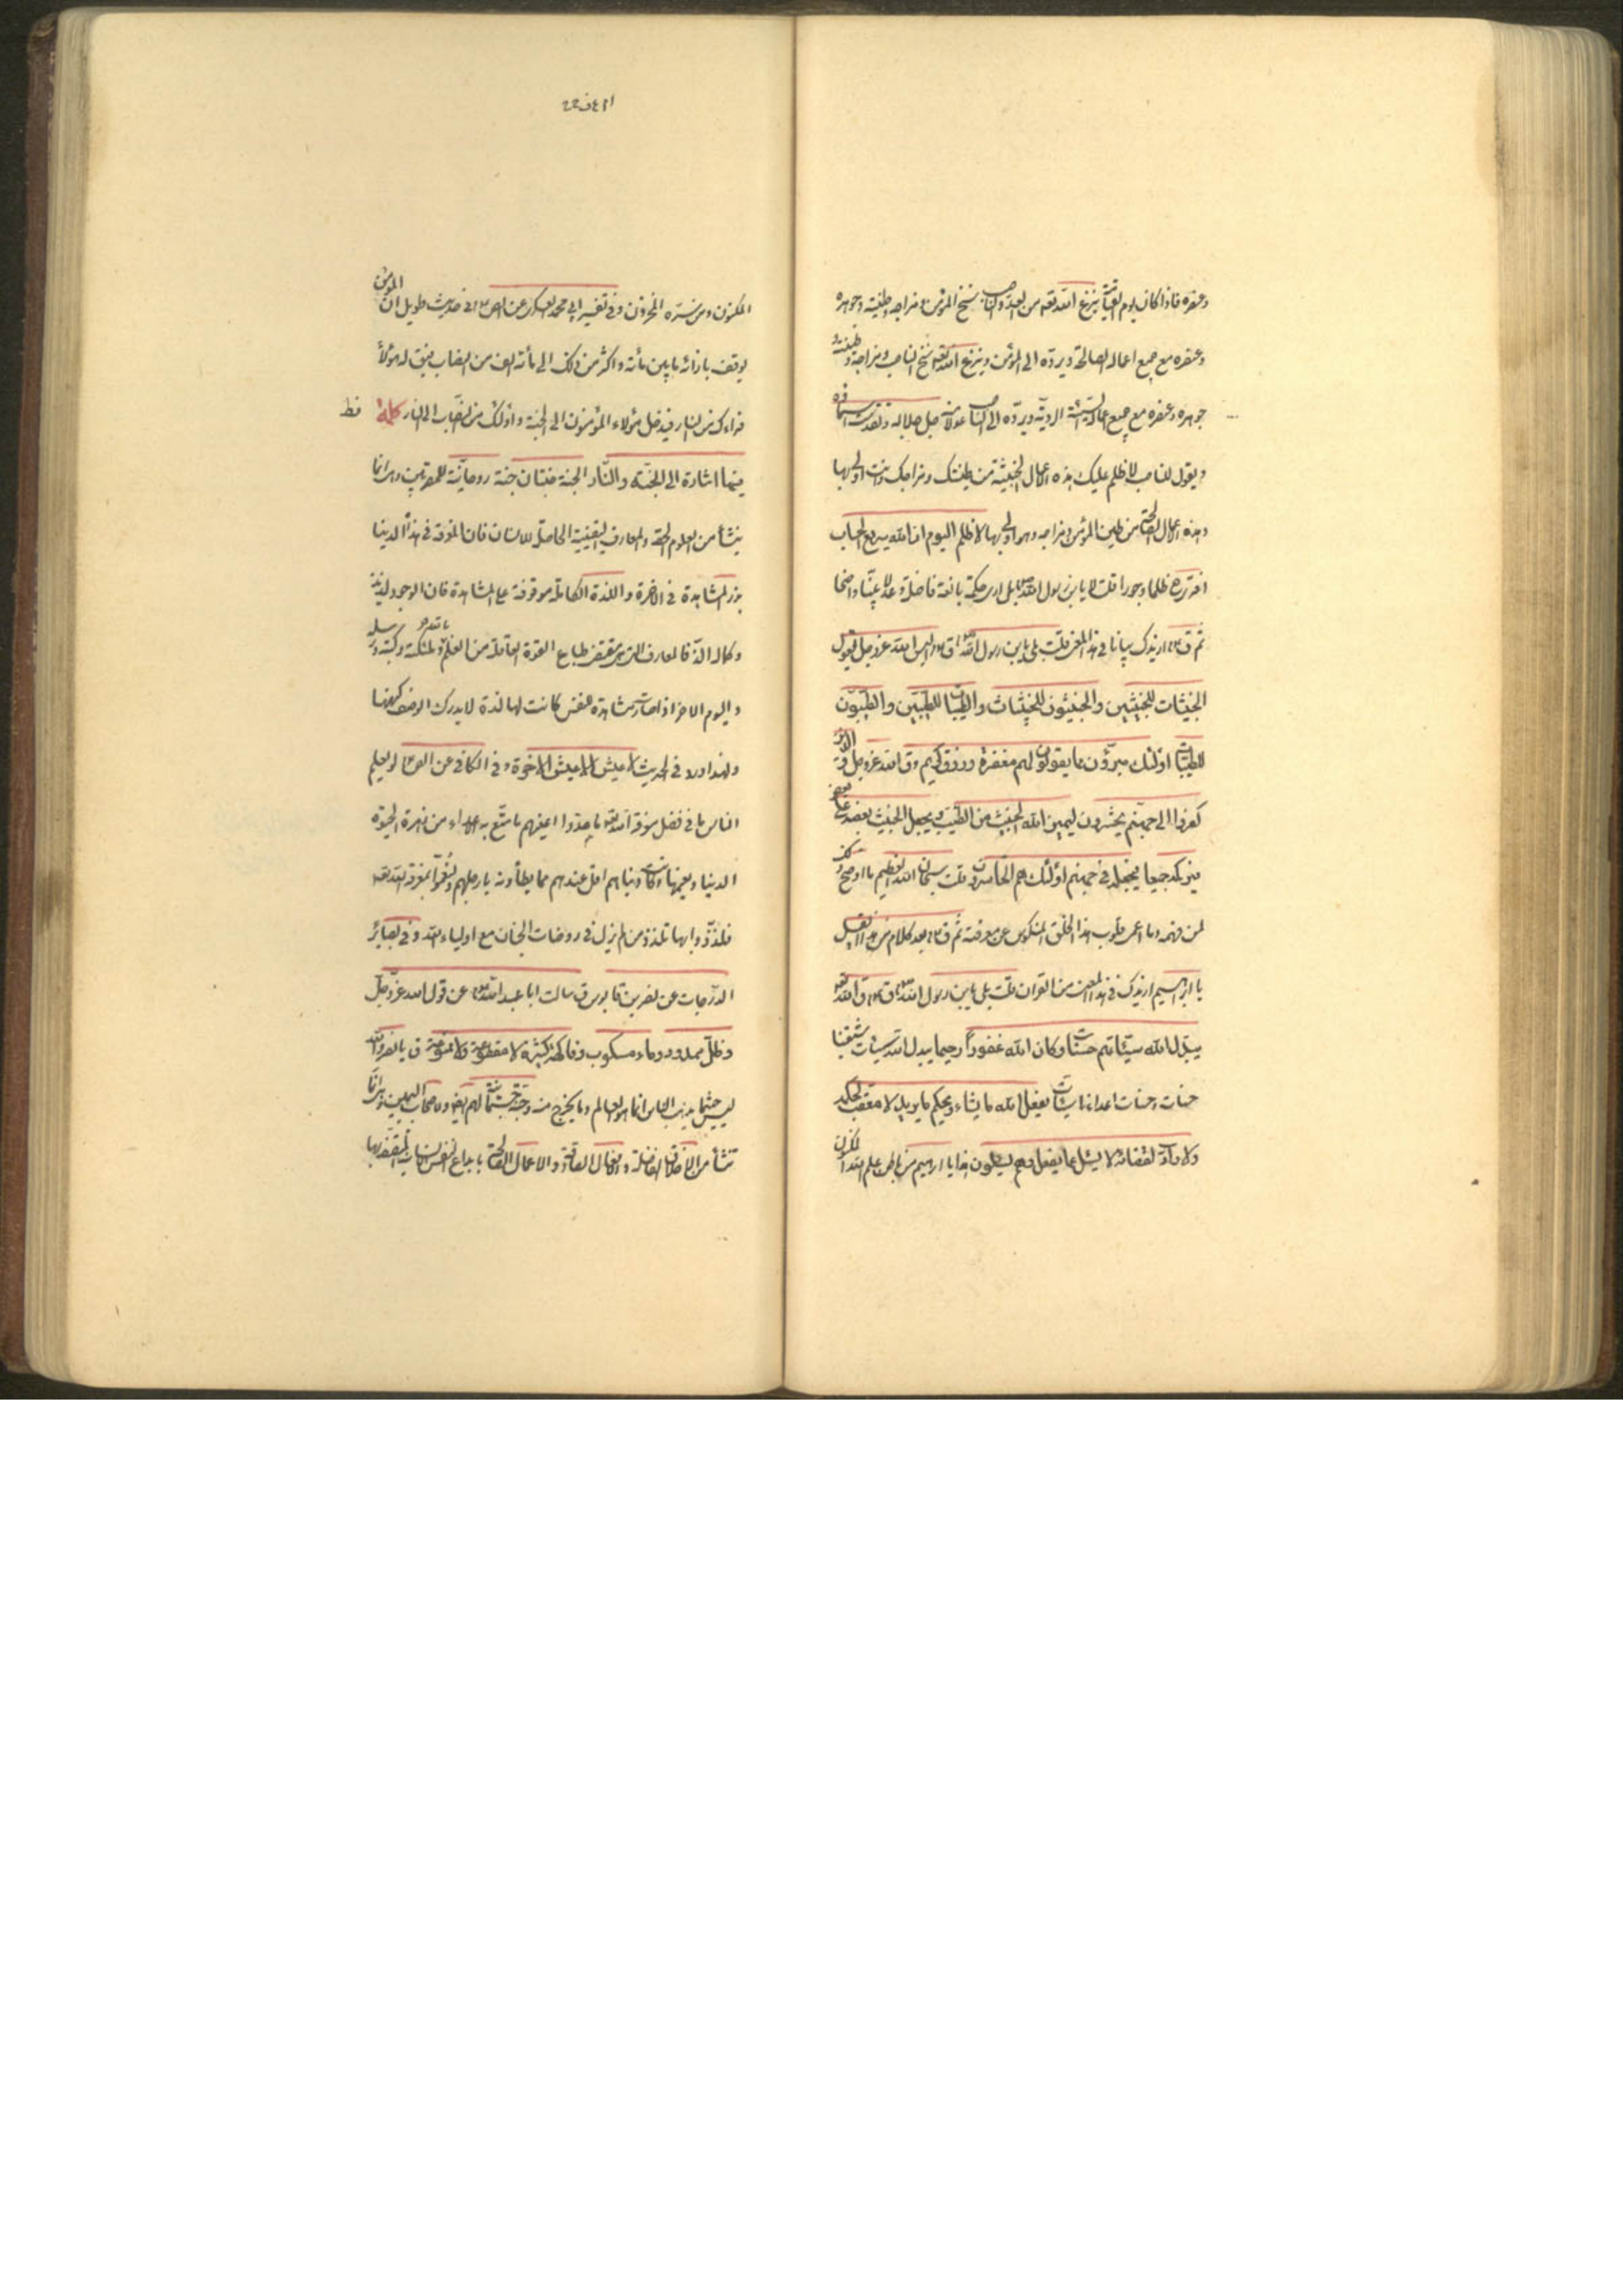 وعنصره فاذا كان يوم القيمة ينزع الله تعه من العدو الناصب سنخ المؤمن ومزاجه وطينته وجوهره
وعنصره مع جميع اعماله الصالحة ويرده الى المؤمن وينزع الله تعه سنخ الناصب ومزاجه وطينته و
جوهره وعنصره مع جميع اعماله السيئة الردية ويرده الى الناصب عدلا منه جل جلاله وتقدست اسماؤه
ويقول للناصب لا ظلم عليك هذه الاعمال الخبيثة من طينتك ومزاجك وانت اولى بها
وهذه الاعمال الصالحة من طين المؤمن ومزاجه وهو اولى بها لا ظلم اليوم ان الله سريع الحساب
افترى ظلما وجورا قلت لا يابن رسول الله بل ارى حكمة بالغة فاضلة وعدلا بينا واضحا
ثم ق ازيدك بيانا في هذا المعنى قلت بلى يابن رسول الله ق اليس الله عز وجل يقول
الخبيثات للخبيثين والخبيثون للخبيثات والطيبات للطيبين والطيبون
للطيبات اولئك مبرؤن مما يقولون لهم مغفرة ورزق كريم وق الله عز وجل والذين
كفروا الى جهنم يحشرون ليميز الله الخبيث من الطيب ويجعل الخبيث بعضه على بعض
فيركمه جميعا فيجعله في جهنم اولئك هم الخاسرون قلت سبحان الله العظيم ما اوضح ذلك
لمن فهمه وما اعمى قلوب هذا الخلق المنكوس عن معرفته ثم ق بعد كلام من هذا القبيل
يا ابراهيم ازيدك في هذا المعنى من القران قلت بلى يابن رسول الله ق ق الله تعه
يبدل الله سيئاتهم حسنات وكان الله غفورا رحيما يبدل الله سيئات شيعتنا
حسنات وحسنات اعدائنا سيئات يفعل الله ما يشاء ويحكم ما يريد لا معقب لحكمه
ولا راد لقضائه لا يسئل عما يفعل وهم يسئلون هذا يا ابراهيم من باطن علم الله المكنون
المكنون ومن سره المخزون وفي تفسير ابي محمد العسكري عن الص في حديث طويل ان المؤمن
يوقف بازائه ما بين مائة واكثر من ذلك الى مائة الف من النصاب فيق له هؤلاء
فداءك من النار فيدخل هؤلاء المؤمنون الى الجنة واولئك من النصاب الى النار كلمة
فيها اشارة الى الجنة والنار الجنة جنتان جنة روحانية للمقربين وهي انما
ينشأ من العلوم الحقة والمعارف اليقينية الحاصلة للانسان فان المعرفة في هذه الدنيا
بزر المشاهدة في الاخرة واللذة الكاملة موقوفة على المشاهدة فان الوجود لذيذ
وكماله الذ فالمعارف التي هي مقتضى طباع القوة العاقلة من العلم بالله وملئكته وكتبه ورسله
واليوم الاخر اذا صارت مشاهدة للنفس كانت لها لذة لا يدرك الوصف كنهها
ولهذا ورد في الحديث لا عيش الا عيش الاخرة وفي الكافي عن الص لو يعلم
الناس ما في فضل معرفة الله تعه ما مدوا اعينهم الى ما متع به الاعداء من زهرة الحيوة
الدنيا ونعيمها وكانت دنياهم اقل عندهم مما يطأونه بارجلهم ولنعموا بمعرفة الله تعه
وتلذذوا بها تلذذ من لم يزل في روضات الجنان مع اولياء الله وفي بصائر
الدرجات عن نصر بن قابوس ق سالت ابا عبد الله عن قول الله عز وجل
وظل ممدود وماء مسكوب وفاكهة كثيرة لا مقطوعة ولا ممنوعة ق يا نصر والله
ليس حيث يذهب الناس انما هو العالم وما يخرج منه وجنة جسمانية لهم ايضا ولاصحاب اليمين وهي انما
تنشأ من الاخلاق الفاضلة والاقوال الصادقة والاعمال الصالحة بابداع النفس الانسانية المتصفة بها